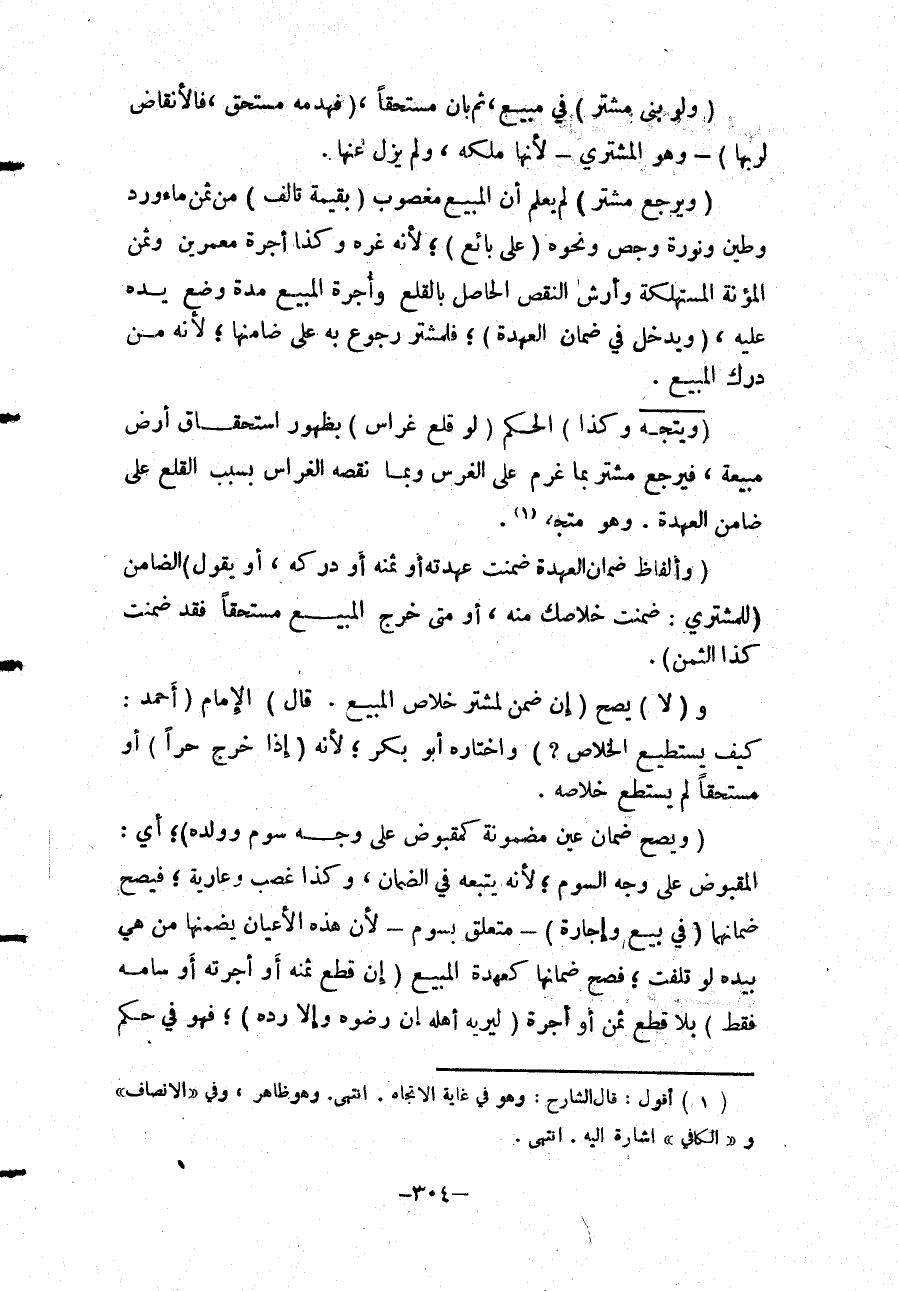 ( ولو بنى مشتر ) في مبيع ، ثم بان مستحقاً ، ( فهدمه مستحق ، فالأنقاض
لربها ) – وهو المشتري – لأنها ملكه ، ولم يزل عنها .
( ويرجع مشتر ) لم يعلم أن المبيع مغصوب ( بقيمة تالف ) من ثمن ماءورد
وطين ونورة وجص ونحوه ( على بائع ) ؛ لأنه غره وكذا أجرة معمرين وثمن
المؤنة المستهلكة وأرش النقص الحاصل بالقلع وأُجرة المبيع مدة وضع يده
عليه ، ( ويدخل في ضمان العهدة ) ؛ فلمشتر رجوع به على ضامنها ؛ لأنه من
درك المبيع .
( ويتجه وكذا ) الحكم ( لو قلع غراس ) بظهور استحقاق أرض
مبيعة ، فيرجع مشتر بما غرم على الغرس وبما نقصه الغراس بسبب القلع على
ضامن العهدة . وهو متجه (١) .
( وألفاظ ضمان العهدة ضمنت عهدته أو ثمنه أو دركه ، أو يقول ) الضامن
( للمشتري : ضمنت خلاصك منه ، أو متى خرج المبيع مستحقاً فقد ضمنت
كذا الثمن ) .
و ( لا ) يصح ( إن ضمن لمشتر خلاص المبيع . قال ) الإمام ( أحمد :
كيف يستطيع الخلاص ؟ ) واختاره أبو بكر ؛ لأنه ( إذا خرج حراً ) أو
مستحقاً لم يستطع خلاصه .
( ويصح ضمان عين مضمونة كمقبوض على وجه سوم وولده ) ؛ أي :
المقبوض على وجه السوم ؛ لأنه يتبعه في الضمان ، وكذا غصب وعارية ؛ فيصح
ضمانها ( في بيع وإجارة ) – متعلق بسوم – لأن هذه الأعيان يضمنها من هي
بيده لو تلفت ؛ فصح ضمانها كعهدة المبيع ( إن قطع ثمنه أو أجرته أو سامه
فقط ) بلا قطع ثمن أو أجرة ( ليريه أهله إن رضوه وإلا رده ) ؛ فهو في حكم
( ١ ) أقول : قال الشارح : وهو في غاية الاتجاه . انتهى . وهو ظاهر ، وفي «الانصاف»
و « الكافي » اشارة اليه . انتهى .
–٣٠٤–